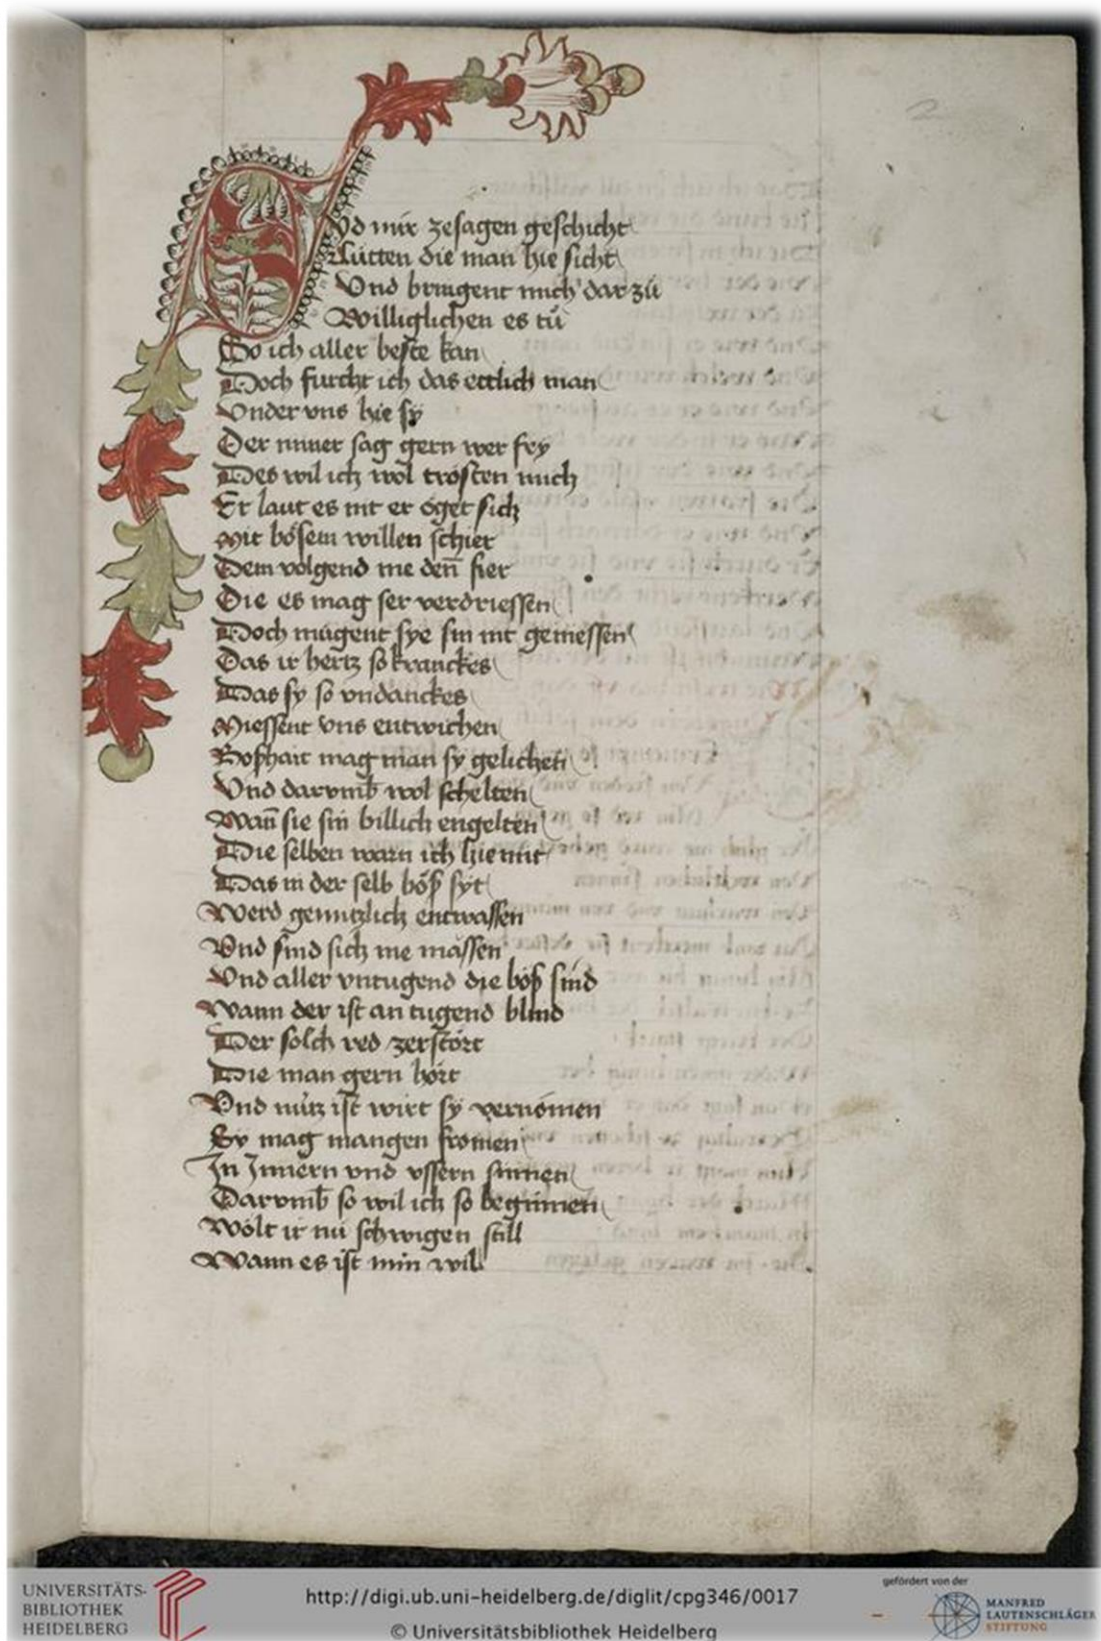 2
Syd mir zesagen geschicht
Lütten die man hie sicht
Vnd bringent mich dar zů
Williglichen es tů
So ich aller beste kan
Doch furcht ich das ettlich man
Vnder vns hie sy
Der nimer sag gern wer frey
Des wil ich wol trösten mich
Er laut es nit er öget sich
Mit bösem willen schier
Dem volgend me deñ fier
Die es mag ser verdriessen
Doch mugent sye sin nit geniessen
Das ir hertz so kranckes
Das sy so vndanckes
Miessent vns entwichen
Boßhait mag man sy gelichen
Vnd darvmb wol schelten
Wañ sie sin billich engelten
Die selben warn ich hie mit
Das in der selb böß syt
Werd gentzlich entwassen
Vnd sind sich me māssen
Vnd aller vntugend die böß sind
Wann der ist an tugend blind
Der sölch red zerstört
Die man gern hört
Vnd nütz ist wirt sy vernomen
Sy mag mangen fromen
In Innern vnd vssern sinnen
Darvmb so wil ich so beginnen
Wölt ir nü schwigen still
Wann es ist min will
UNIVERSITÄTS-
BIBLIOTHEK
HEIDELBERG
http://digi.ub.uni-heidelberg.de/diglit/cpg346/0017
© Universitätsbibliothek Heidelberg
gefördert von der
MANFRED
LAUTENSCHLÄGER
STIFTUNG